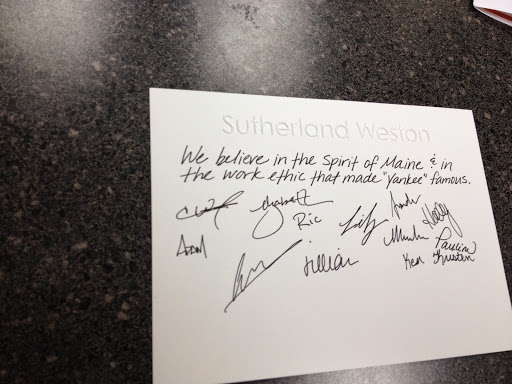 Sutherland Weston
We believe in the Spirit of Maine & in
the work ethic that made "Yankee" famous.
Elizabeth
Ric
Holly
Adam
Jillian
Pauline
Ken Kristen